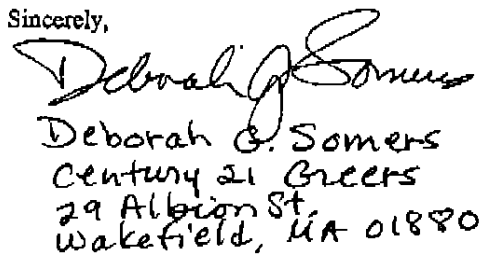 Sincerely,
Deborah G. Somers
Deborah G. Somers
Century 21 Greers
29 Albion St.
Wakefield, MA 01880